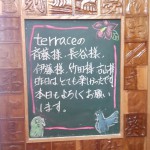 terraceの
斉藤様、長谷様、
伊藤様、竹田様
昨日はとても楽しかったです
本日もよろしくお願い
します。